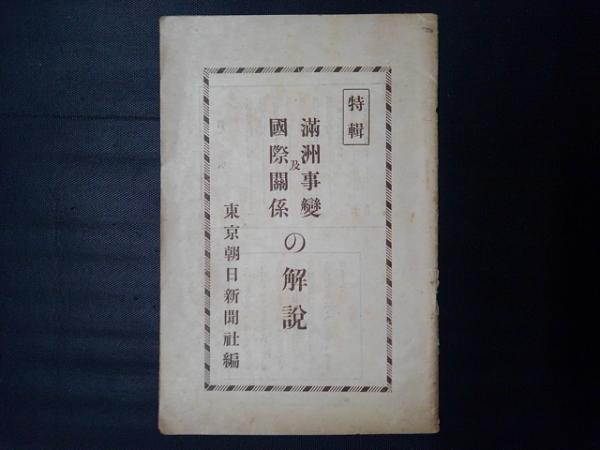 特輯
滿洲事變
及
國際關係
の解說
東京朝日新聞社編